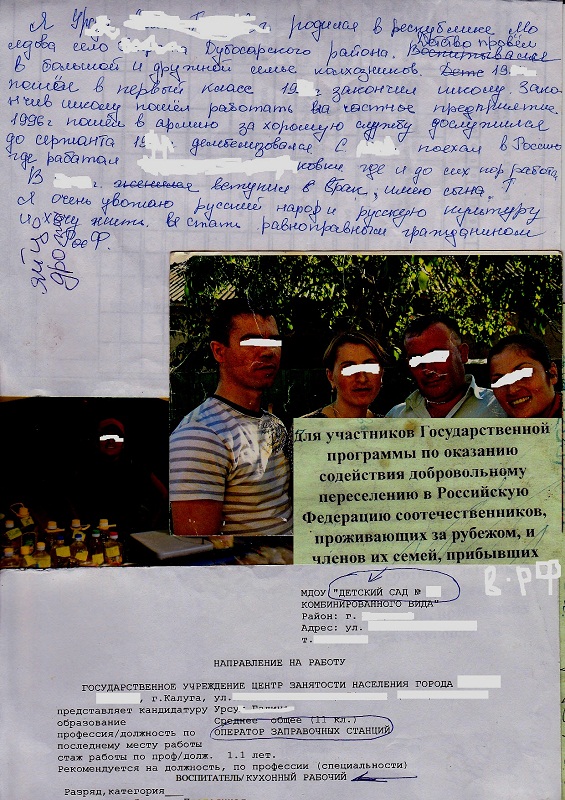 Я Урс родился в республике Мо
лдова село Дубосарского района. Воспитывался детство провёл
в большой и дружной семье колхозников. Дете 19
пошёл в первый класс 19 закончил школу. Зако-
нчив школу пошёл работать на частное предприятие.
1996г пошёл в армию за хорошую службу дослужился
до сержанта 19 демобилизовался. С поехал в Россию
где работал ковки где и до сих пор работа
В г. женился вступил в брак, имею сына.
Я очень уважаю русский народ и русскую культуру
и хочу жить и стать равноправным гражданином
РФ.
Для участников Государственной
программы по оказанию
содействия добровольному
переселению в Российскую
Федерацию соотечественников,
проживающих за рубежом, и
членов их семей, прибывших
в РФ
МДОУ "ДЕТСКИЙ САД №
КОМБИНИРОВАННОГО ВИДА"
Район: г.
Адрес: ул.
т.
НАПРАВЛЕНИЕ НА РАБОТУ
ГОСУДАРСТВЕННОЕ УЧРЕЖДЕНИЕ ЦЕНТР ЗАНЯТОСТИ НАСЕЛЕНИЯ ГОРОДА
, г.Калуга, ул.
представляет кандидатуру Урсу
образование Среднее общее (11 кл.)
профессия/должность по ОПЕРАТОР ЗАПРАВОЧНЫХ СТАНЦИЙ
последнему месту работы
стаж работы по проф/долж. 1.1 лет.
Рекомендуется на должность, по профессии (специальности)
ВОСПИТАТЕЛЬ/КУХОННЫЙ РАБОЧИЙ
Разряд,категория___